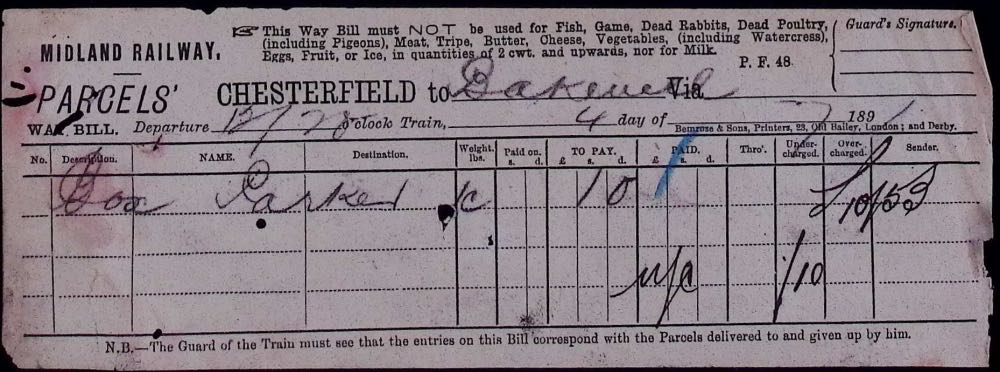 ☞ This Way Bill must NOT be used for Fish, Game, Dead Rabbits, Dead Poultry,
(including Pigeons), Meat, Tripe, Butter, Cheese, Vegetables, (including Watercress),
Eggs, Fruit, or Ice, in quantities of 2 cwt. and upwards, nor for Milk.
Guard's Signature.
MIDLAND RAILWAY.
P. F. 48.
PARCELS' CHESTERFIELD to Bakewell Via
WAY BILL. Departure 12/28 o'clock Train, 4 day of 7 1891
Bemrose & Sons, Printers, 23, Old Bailey, London; and Derby.
No. Description. NAME. Destination. Weight. lbs. Paid on. s. d. TO PAY. £ s. d. PAID. £ s. d. Thro'. Under-charged. Over-charged. Sender.
Box Parker 10 10/53
/10
N.B.—The Guard of the Train must see that the entries on this Bill correspond with the Parcels delivered to and given up by him.